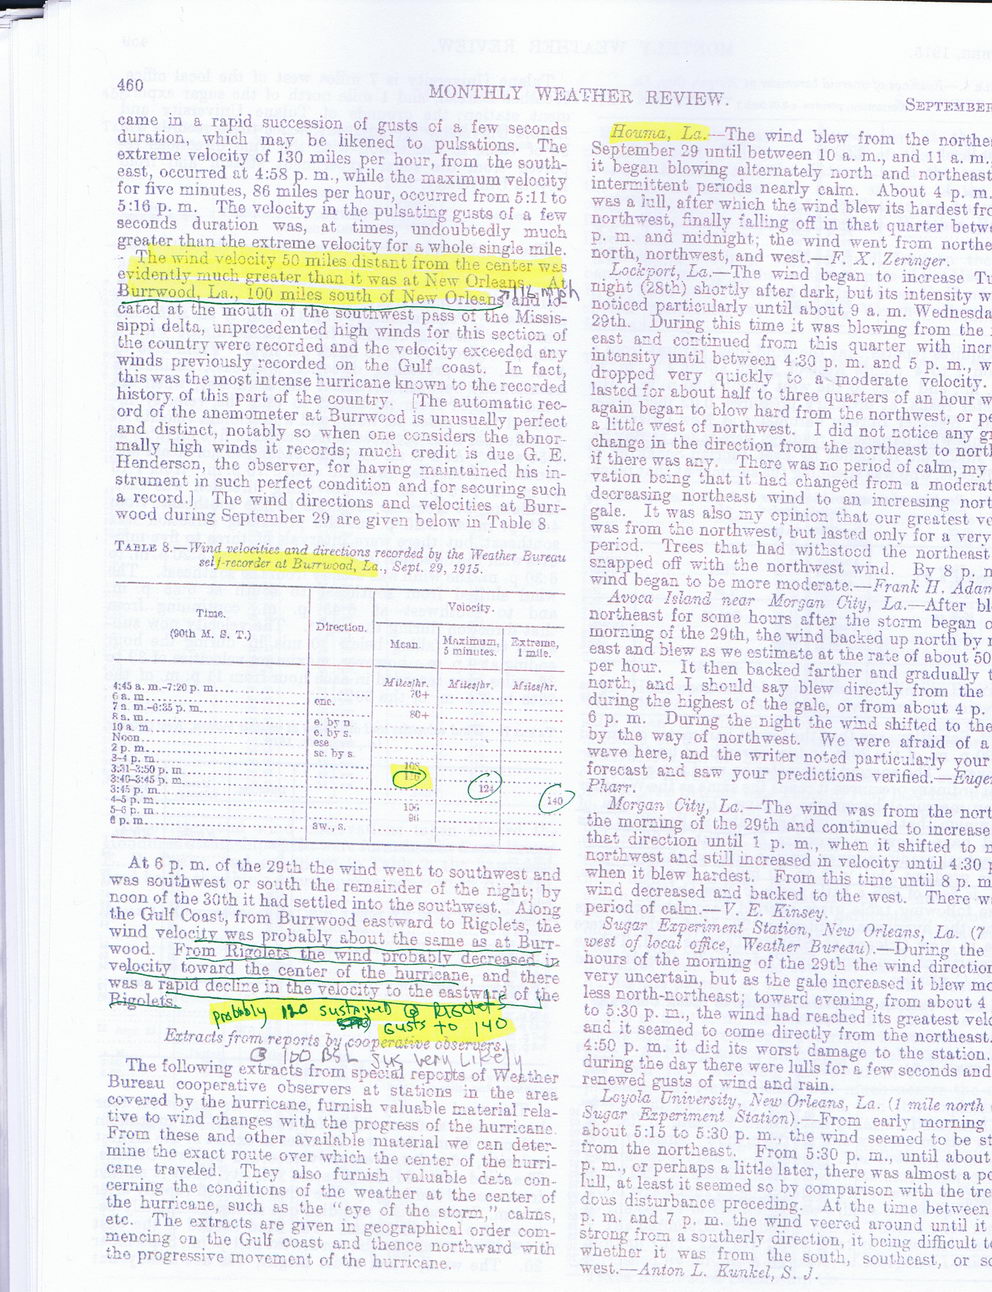 460
MONTHLY WEATHER REVIEW.
SEPTEMBER
came in a rapid succession of gusts of a few seconds
duration, which may be likened to pulsations. The
extreme velocity of 130 miles per hour, from the south-
east, occurred at 4:58 p. m., while the maximum velocity
for five minutes, 86 miles per hour, occurred from 5:11 to
5:16 p. m. The velocity in the pulsating gusts of a few
seconds duration was, at times, undoubtedly much
greater than the extreme velocity for a whole single mile.
The wind velocity 50 miles distant from the center was
evidently much greater than it was at New Orleans. At
Burrwood, La., 100 miles south of New Orleans and lo-
cated at the mouth of the southwest pass of the Missis-
sippi delta, unprecedented high winds for this section of
the country were recorded and the velocity exceeded any
winds previously recorded on the Gulf coast. In fact,
this was the most intense hurricane known to the recorded
history of this part of the country. [The automatic rec-
ord of the anemometer at Burrwood is unusually perfect
and distinct, notably so when one considers the abnor-
mally high winds it records; much credit is due G. E.
Henderson, the observer, for having maintained his in-
strument in such perfect condition and for securing such
a record.] The wind directions and velocities at Burr-
wood during September 29 are given below in Table 8.
TABLE 8.—Wind velocities and directions recorded by the Weather Bureau
self-recorder at Burrwood, La., Sept. 29, 1915.
Time. (90th M. S. T.) Direction. Velocity.
Mean. Maximum, 5 minutes. Extreme, 1 mile.
Miles/hr. Miles/hr. Miles/hr.
4:45 a. m.–7:20 p. m.
6 a. m. 70+
7 a. m.–6:35 p. m. ene.
8 a. m. 80+
10 a. m. e. by n.
Noon e. by s.
2 p. m. ese
3-4 p. m. se. by s.
3:31–3:50 p. m. 108
3:40–3:45 p. m.
3:45 p. m. 124
4-5 p. m. 140
5-6 p. m. 106
6 p. m. 96
sw., s.
At 6 p. m. of the 29th the wind went to southwest and
was southwest or south the remainder of the night; by
noon of the 30th it had settled into the southwest. Along
the Gulf Coast, from Burrwood eastward to Rigolets, the
wind velocity was probably about the same as at Burr-
wood. From Rigolets the wind probably decreased in
velocity toward the center of the hurricane, and there
was a rapid decline in the velocity to the eastward of the
Rigolets.
probably 120 sustained @ Rigolets
Gusts to 140
Extracts from reports by cooperative observers.
@ 100 BSL sus very likely
The following extracts from special reports of Weather
Bureau cooperative observers at stations in the area
covered by the hurricane, furnish valuable material rela-
tive to wind changes with the progress of the hurricane.
From these and other available material we can deter-
mine the exact route over which the center of the hurri-
cane traveled. They also furnish valuable data con-
cerning the conditions of the weather at the center of
the hurricane, such as the "eye of the storm," calms,
etc. The extracts are given in geographical order com-
mencing on the Gulf coast and thence northward with
the progressive movement of the hurricane.
Houma, La.—The wind blew from the northe
September 29 until between 10 a. m., and 11 a. m.,
it began blowing alternately north and northeast
intermittent periods nearly calm. About 4 p. m.
was a lull, after which the wind blew its hardest fro
northwest, finally falling off in that quarter betwe
p. m. and midnight; the wind went from northe
north, northwest, and west.—F. X. Zeringer.
Lockport, La.—The wind began to increase Tu
night (28th) shortly after dark, but its intensity w
noticed particularly until about 9 a. m. Wednesda
29th. During this time it was blowing from the
east and continued from this quarter with incr
intensity until between 4:30 p. m. and 5 p. m., w
dropped very quickly to a moderate velocity.
lasted for about half to three quarters of an hour w
again began to blow hard from the northwest, or pe
a little west of northwest. I did not notice any gr
change in the direction from the northeast to north
if there was any. There was no period of calm, my
vation being that it had changed from a moderat
decreasing northeast wind to an increasing nort
gale. It was also my opinion that our greatest ve
was from the northwest, but lasted only for a very
period. Trees that had withstood the northeast
snapped off with the northwest wind. By 8 p. m
wind began to be more moderate.—Frank H. Adam
Avoca Island near Morgan City, La.—After bl
northeast for some hours after the storm began o
morning of the 29th, the wind backed up north by n
east and blew as we estimate at the rate of about 50
per hour. It then backed farther and gradually t
north, and I should say blew directly from the
during the highest of the gale, or from about 4 p.
6 p. m. During the night the wind shifted to the
by the way of northwest. We were afraid of a
wave here, and the writer noted particularly your
forecast and saw your predictions verified.—Euge
Pharr.
Morgan City, La.—The wind was from the nort
the morning of the 29th and continued to increase
that direction until 1 p. m., when it shifted to n
northwest and still increased in velocity until 4:30 p
when it blew hardest. From this time until 8 p. m
wind decreased and backed to the west. There w
period of calm.—V. E. Kinsey.
Sugar Experiment Station, New Orleans, La. (7
west of local office, Weather Bureau).—During the
hours of the morning of the 29th the wind direction
very uncertain, but as the gale increased it blew mo
less north-northeast; toward evening, from about 4
to 5:30 p. m., the wind had reached its greatest velo
and it seemed to come directly from the northeast.
4:50 p. m. it did its worst damage to the station.
during the day there were lulls for a few seconds and
renewed gusts of wind and rain.
Loyola University, New Orleans, La. (1 mile north
Sugar Experiment Station).—From early morning
about 5:15 to 5:30 p. m., the wind seemed to be st
from the northeast. From 5:30 p. m., until about
p. m., or perhaps a little later, there was almost a pe
lull, at least it seemed so by comparison with the tre
dous disturbance preceding. At the time between
p. m. and 7 p. m. the wind veered around until it
strong from a southerly direction, it being difficult t
whether it was from the south, southeast, or so
west.—Anton L. Kunkel, S. J.